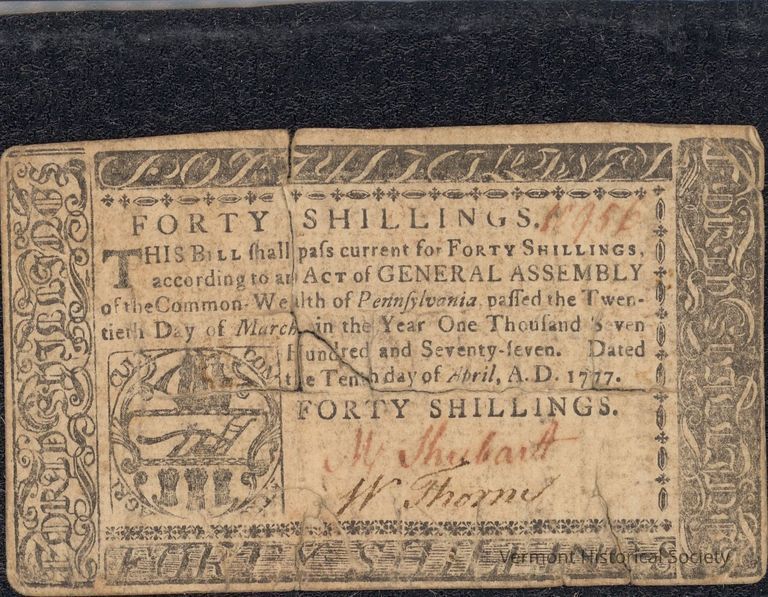 FORTY SHILLINGS
FORTY SHILLINGS. No 956
THIS BILL ſhall paſs current for FORTY SHILLINGS,
according to an ACT of GENERAL ASSEMBLY
of the Common-Wealth of Pennſylvania, paſſed the Twen-
tieth Day of March, in the Year One Thouſand Seven
Hundred and Seventy-ſeven. Dated
the Tenth day of April, A.D. 1777.
FORTY SHILLINGS.
M Shubart
W Thorne
FORTY SHILLINGS
Vermont Historical Society